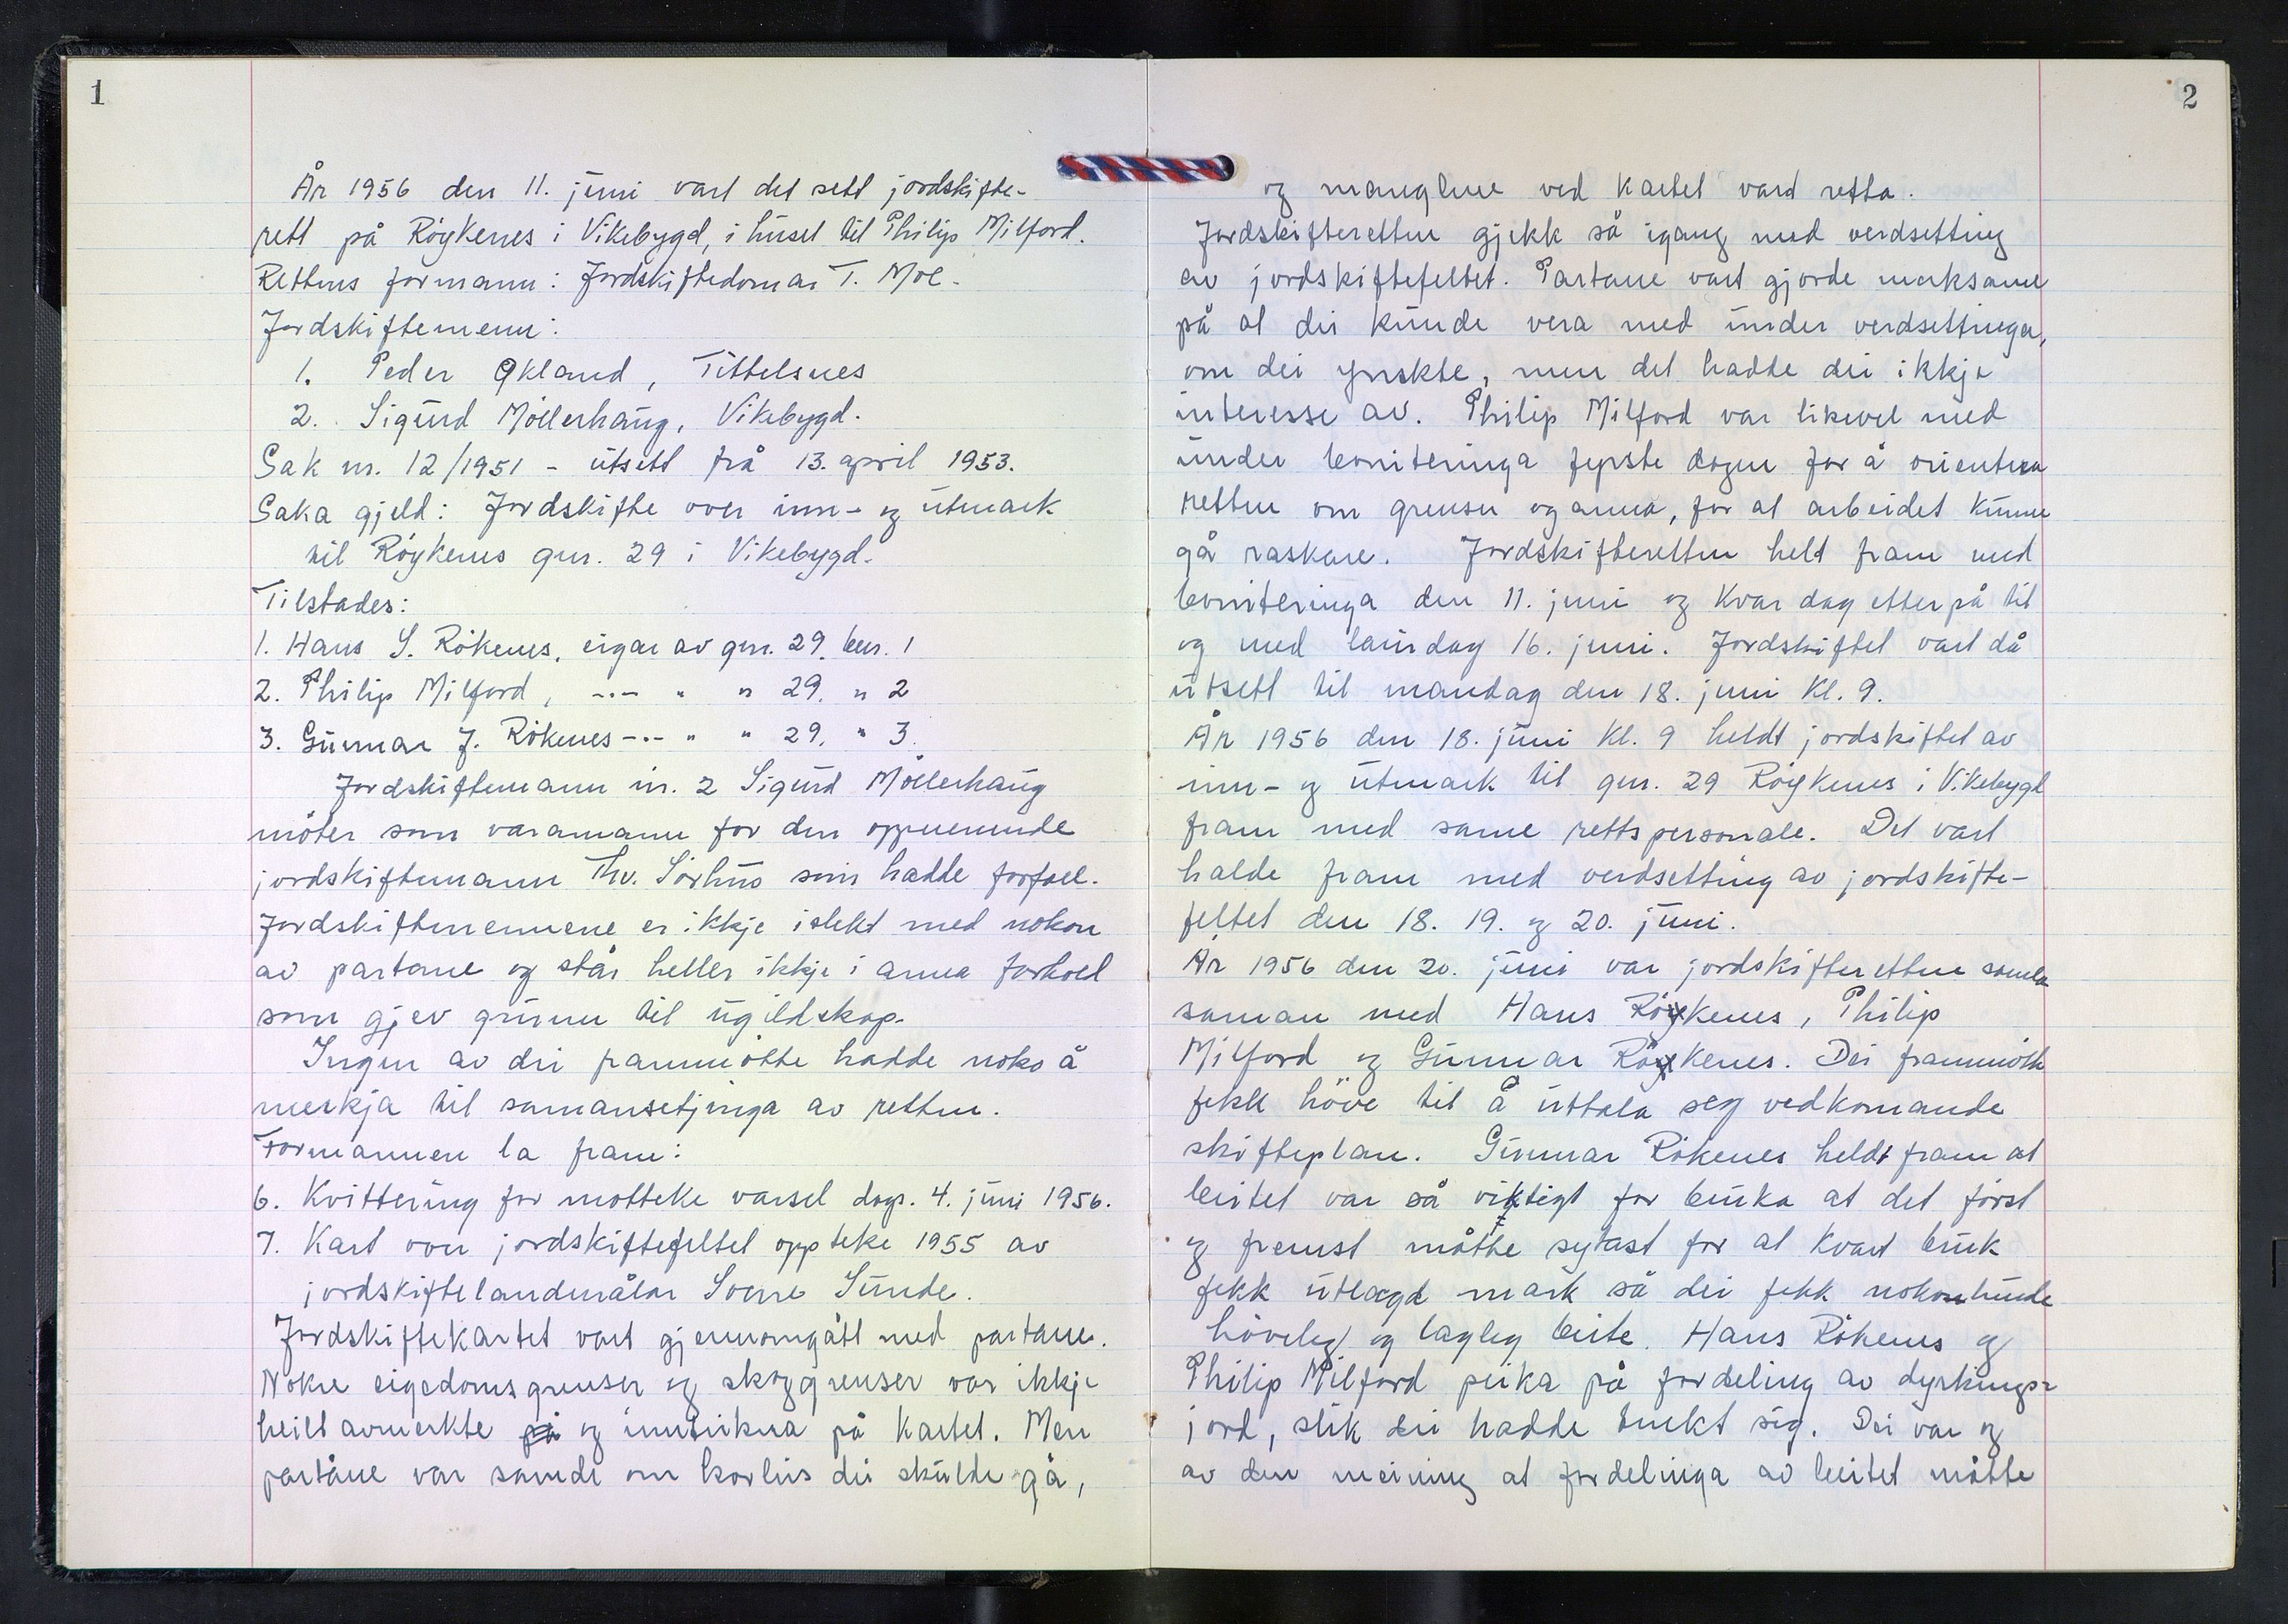 1
År 1956 den 11. juni vart det sett jordskifte-
rett på Röykenes i Vikebygd, i huset til Philip Milford.
Rettens formann: Jordskiftedomar T. Moe.
Jordskiftemenn:
1. Peder Økland, Tittelsnes
2. Sigurd Möllerhaug, Vikebygd.
Sak nr. 12/1951 - utsett frå 13. april 1953.
Saka gjeld: Jordskifte over inn- og utmark
til Röykenes gnr. 29 i Vikebygd.
Tilstades:
1. Hans S. Rökenes, eigar av gnr. 29. bnr. 1
2. Philip Milford, -.- " " 29. " 2
3. Gunnar J. Rökenes -.- " " 29. " 3.
Jordskiftemann nr. 2 Sigurd Möllerhaug
möter som varamann for den oppnemnde
jordskiftemann Thv. Sörhus som hadde forfall.
Jordskiftemennene er ikkje i slekt med nokon
av partane og står heller ikkje i anna forhold
som gjev grunn til ugildskap.
Ingen av dei frammötte hadde noko å
merkja til samansetjinga av retten.
Formannen la fram:
6. Kvittering for motteke varsel dags. 4. juni 1956.
7. Kart over jordskiftefeltet oppteke 1955 av
jordskiftelandmålar Sverre Sunde.
Jordskiftekartet vart gjennomgått med partane.
Nokre eigedomsgrenser og skoggrenser var ikkje
heilt avmerkte på og innteikna på kartet. Men
partane var samde om korleis dei skulde gå,
2
og manglene ved kartet vard retta.
Jordskifteretten gjekk så igang med verdsetting
av jordskiftefeltet. Partane vart gjorde merksame
på at dei kunde vera med under verdsettinga,
om dei ynskte, men det hadde dei ikkje
interesse av. Philip Milford var likevel med
under boniteringa fyrste dagen for å orientera
retten om grenser og anna, for at arbeidet kunne
gå raskare. Jordskifteretten helt fram med
boniteringa den 11. juni og kvar dag etter på til
og med laurdag 16. juni. Jordskiftet vart då
utsett til mandag den 18. juni kl. 9.
År 1956 den 18. juni kl. 9 heldt jordskiftet av
inn- og utmark til gnr. 29 Röykenes i Vikebygd
fram med same rettspersonale. Det vart
halde fram med verdsetting av jordskifte-
feltet den 18. 19. og 20. juni.
År 1956 den 20. juni var jordskifteretten samla
saman med Hans Röykenes, Philip
Milford og Gunnar Röykenes. Dei frammötte
fekk höve til å uttala seg vedkomande
skifteplan. Gunnar Rökenes heldt fram at
beitet var så viktigt for bruka at det först
og fremst måtte sytast for at kvart bruk
fekk utlagd mark så dei fekk nokonlunde
höveleg og lagleg beite. Hans Rökenes og
Philip Milford peika på fordeling av dyrkings-
jord, slik dei hadde tenkt sig. Dei var og
av den meining at fordelinga av beitet måtte